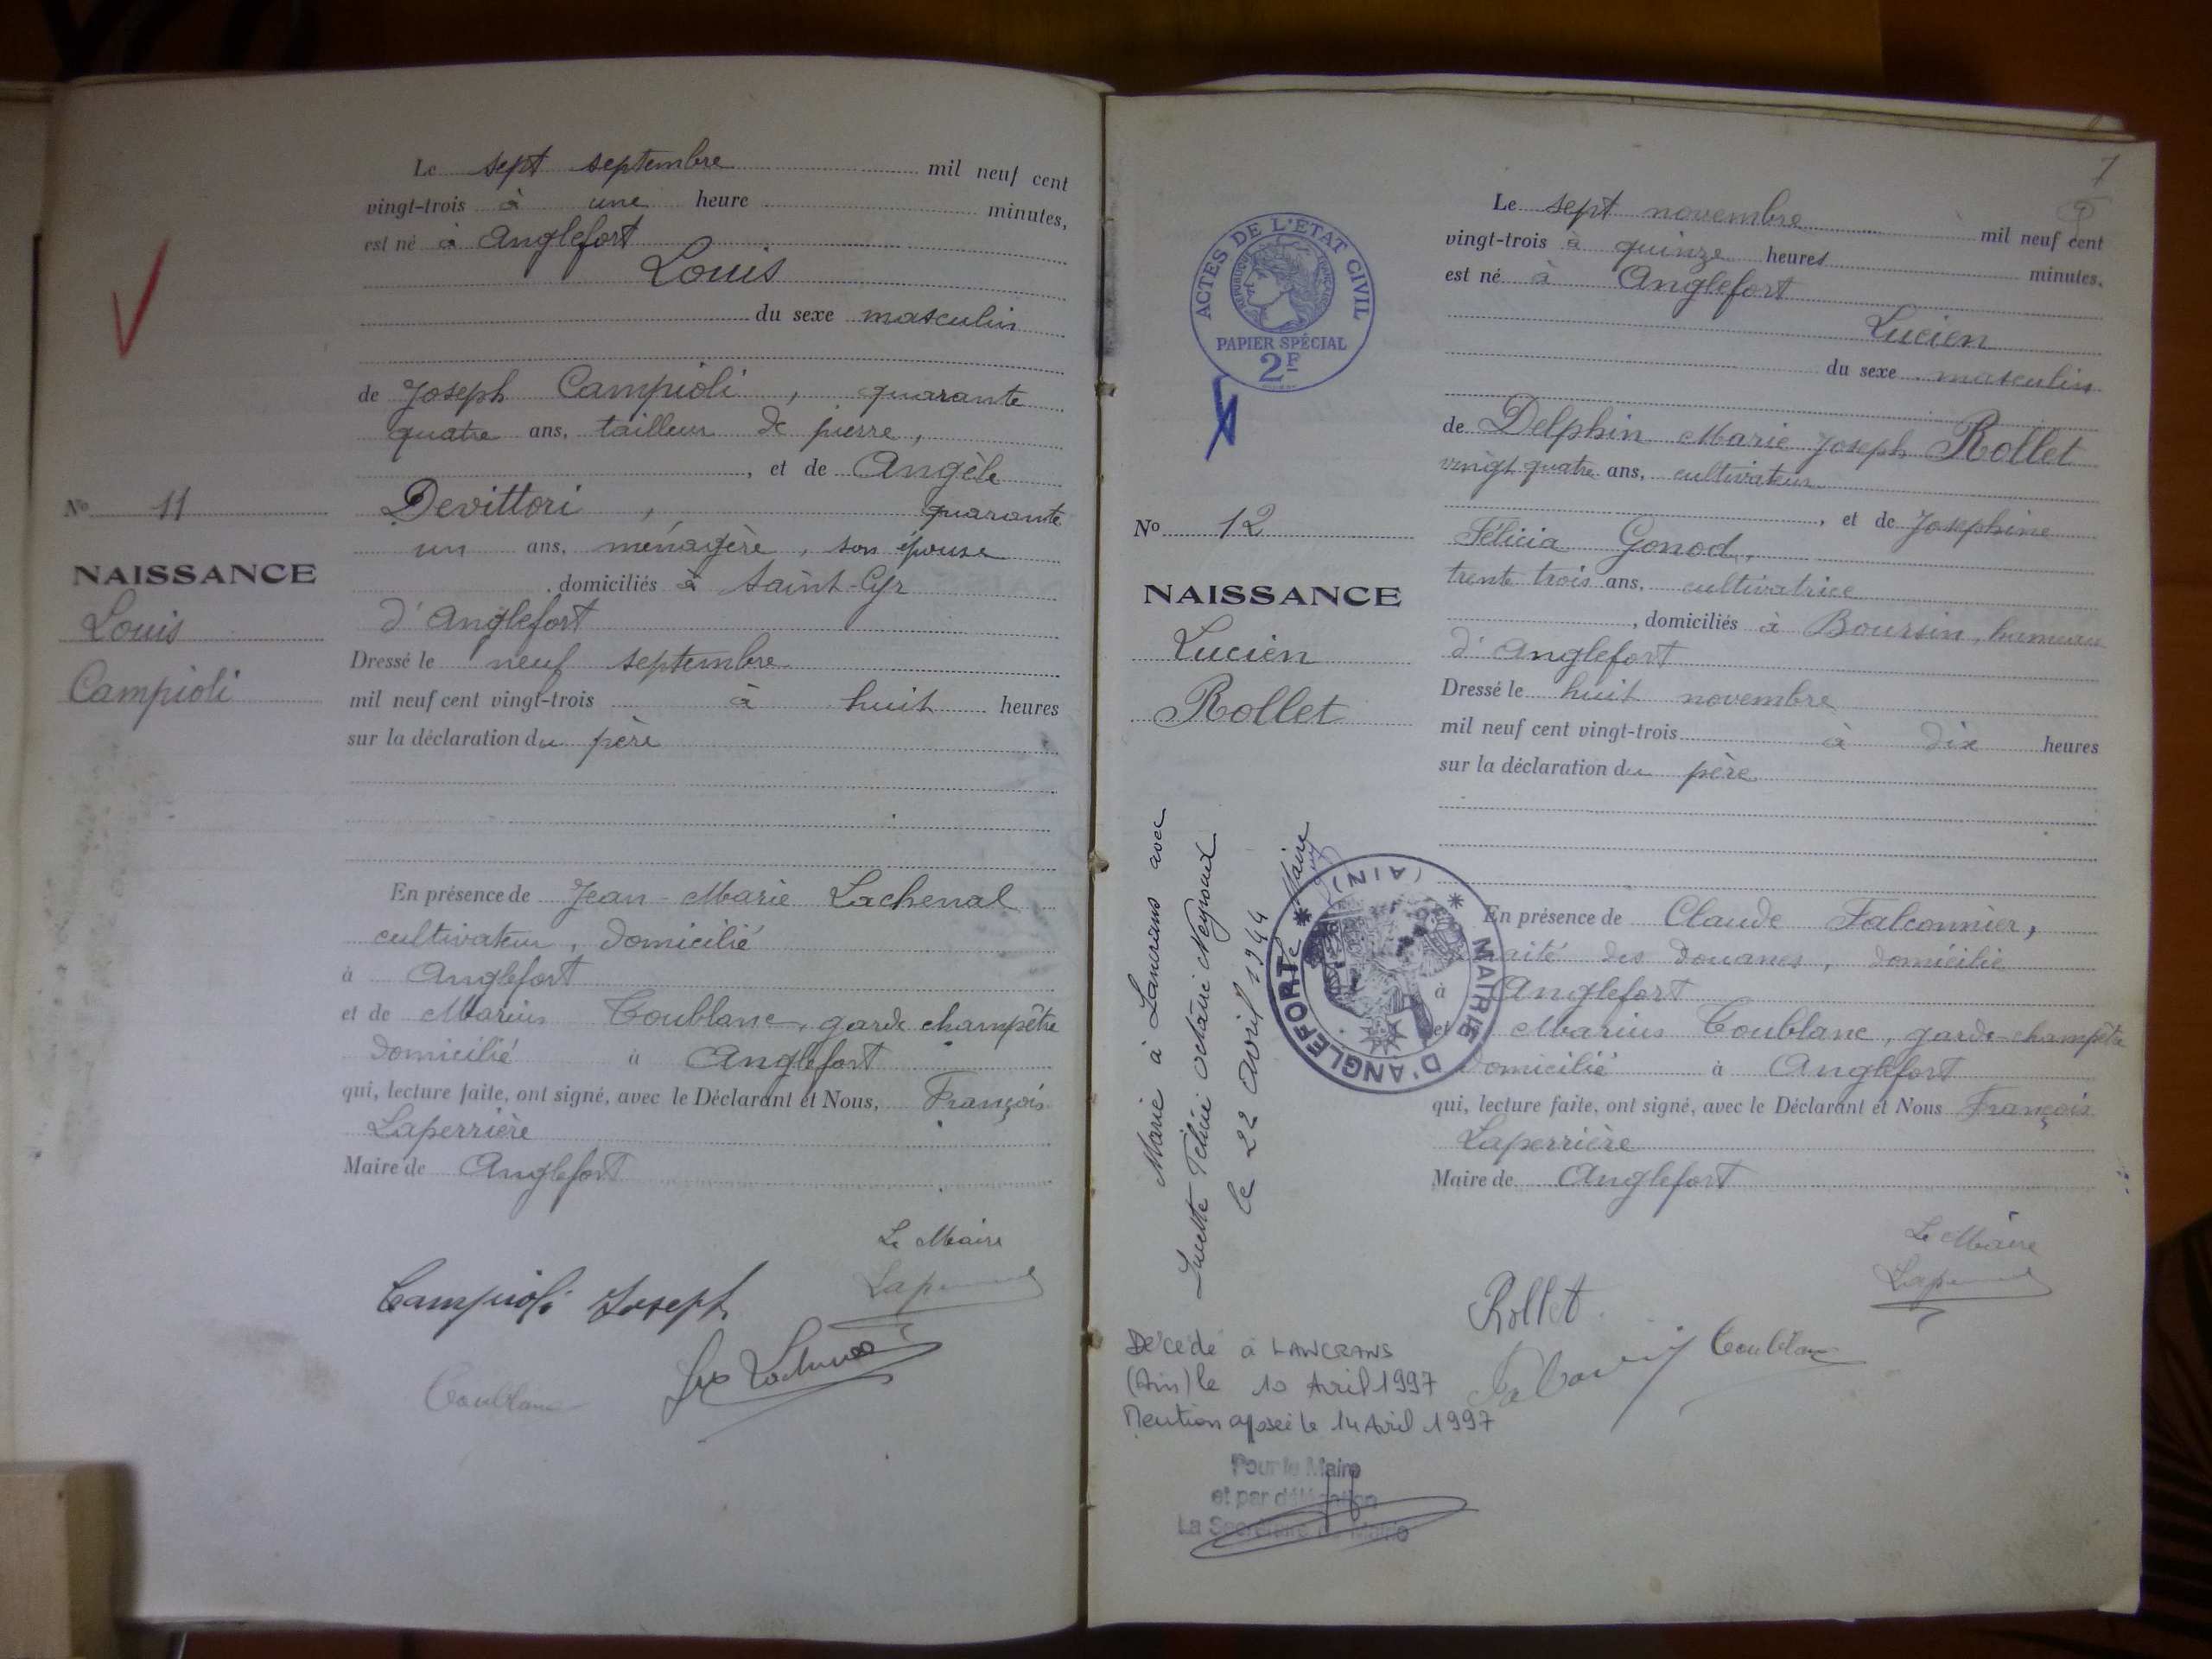 Le sept septembre mil neuf cent
vingt-trois à une heure minutes,
est né à Anglefort
Louis
du sexe masculin
de Joseph Campioli, quarante
quatre ans, tailleur de pierre,
, et de Angèle
Devittori, quarante
un ans, ménagère, son épouse
domiciliés à Saint-Cyr
d'Anglefort
Dressé le neuf septembre
mil neuf cent vingt-trois à huit heures
sur la déclaration du père
En présence de Jean-Marie Lachenal
cultivateur, domicilié
à Anglefort
et de Marius Coublanc, garde champêtre
domicilié à Anglefort
qui, lecture faite, ont signé, avec le Déclarant et Nous, François
Laperrière
Maire de Anglefort
Le Maire
Campioli Joseph
Coublanc
No 11
NAISSANCE
Louis
Campioli
7
Le sept novembre mil neuf cent
vingt-trois à quinze heures minutes.
est né à Anglefort
Lucien
du sexe masculin
de Delphin Marie Joseph Rollet
vingt quatre ans, cultivateur
, et de Joséphine
Félicia Gonod,
trente trois ans, cultivatrice
, domiciliés à Boursin, hameau
d'Anglefort
Dressé le huit novembre
mil neuf cent vingt-trois à dix heures
sur la déclaration du père
En présence de Claude Falconnier,
des douanes, domicilié
à Anglefort
et Marius Coublanc, garde-champêtre
domicilié à Anglefort
qui, lecture faite, ont signé, avec le Déclarant et Nous François
Laperrière
Maire de Anglefort
Le Maire
Rollet
Coublanc
ACTES DE L'ETAT CIVIL
REPUBLIQUE FRANÇAISE
PAPIER SPÉCIAL
2F
No 12
NAISSANCE
Lucien
Rollet
Marié à Lancrans avec
Lucette Félicie Octavie Neyroud
le 22 avril 1944
Le Maire
MAIRIE D'ANGLEFORT
(AIN)
Décédé à LANCRANS
(Ain) le 10 Avril 1997
Mention apposée le 14 Avril 1997
Pour le Maire
et par délégation
La Secrétaire de Mairie